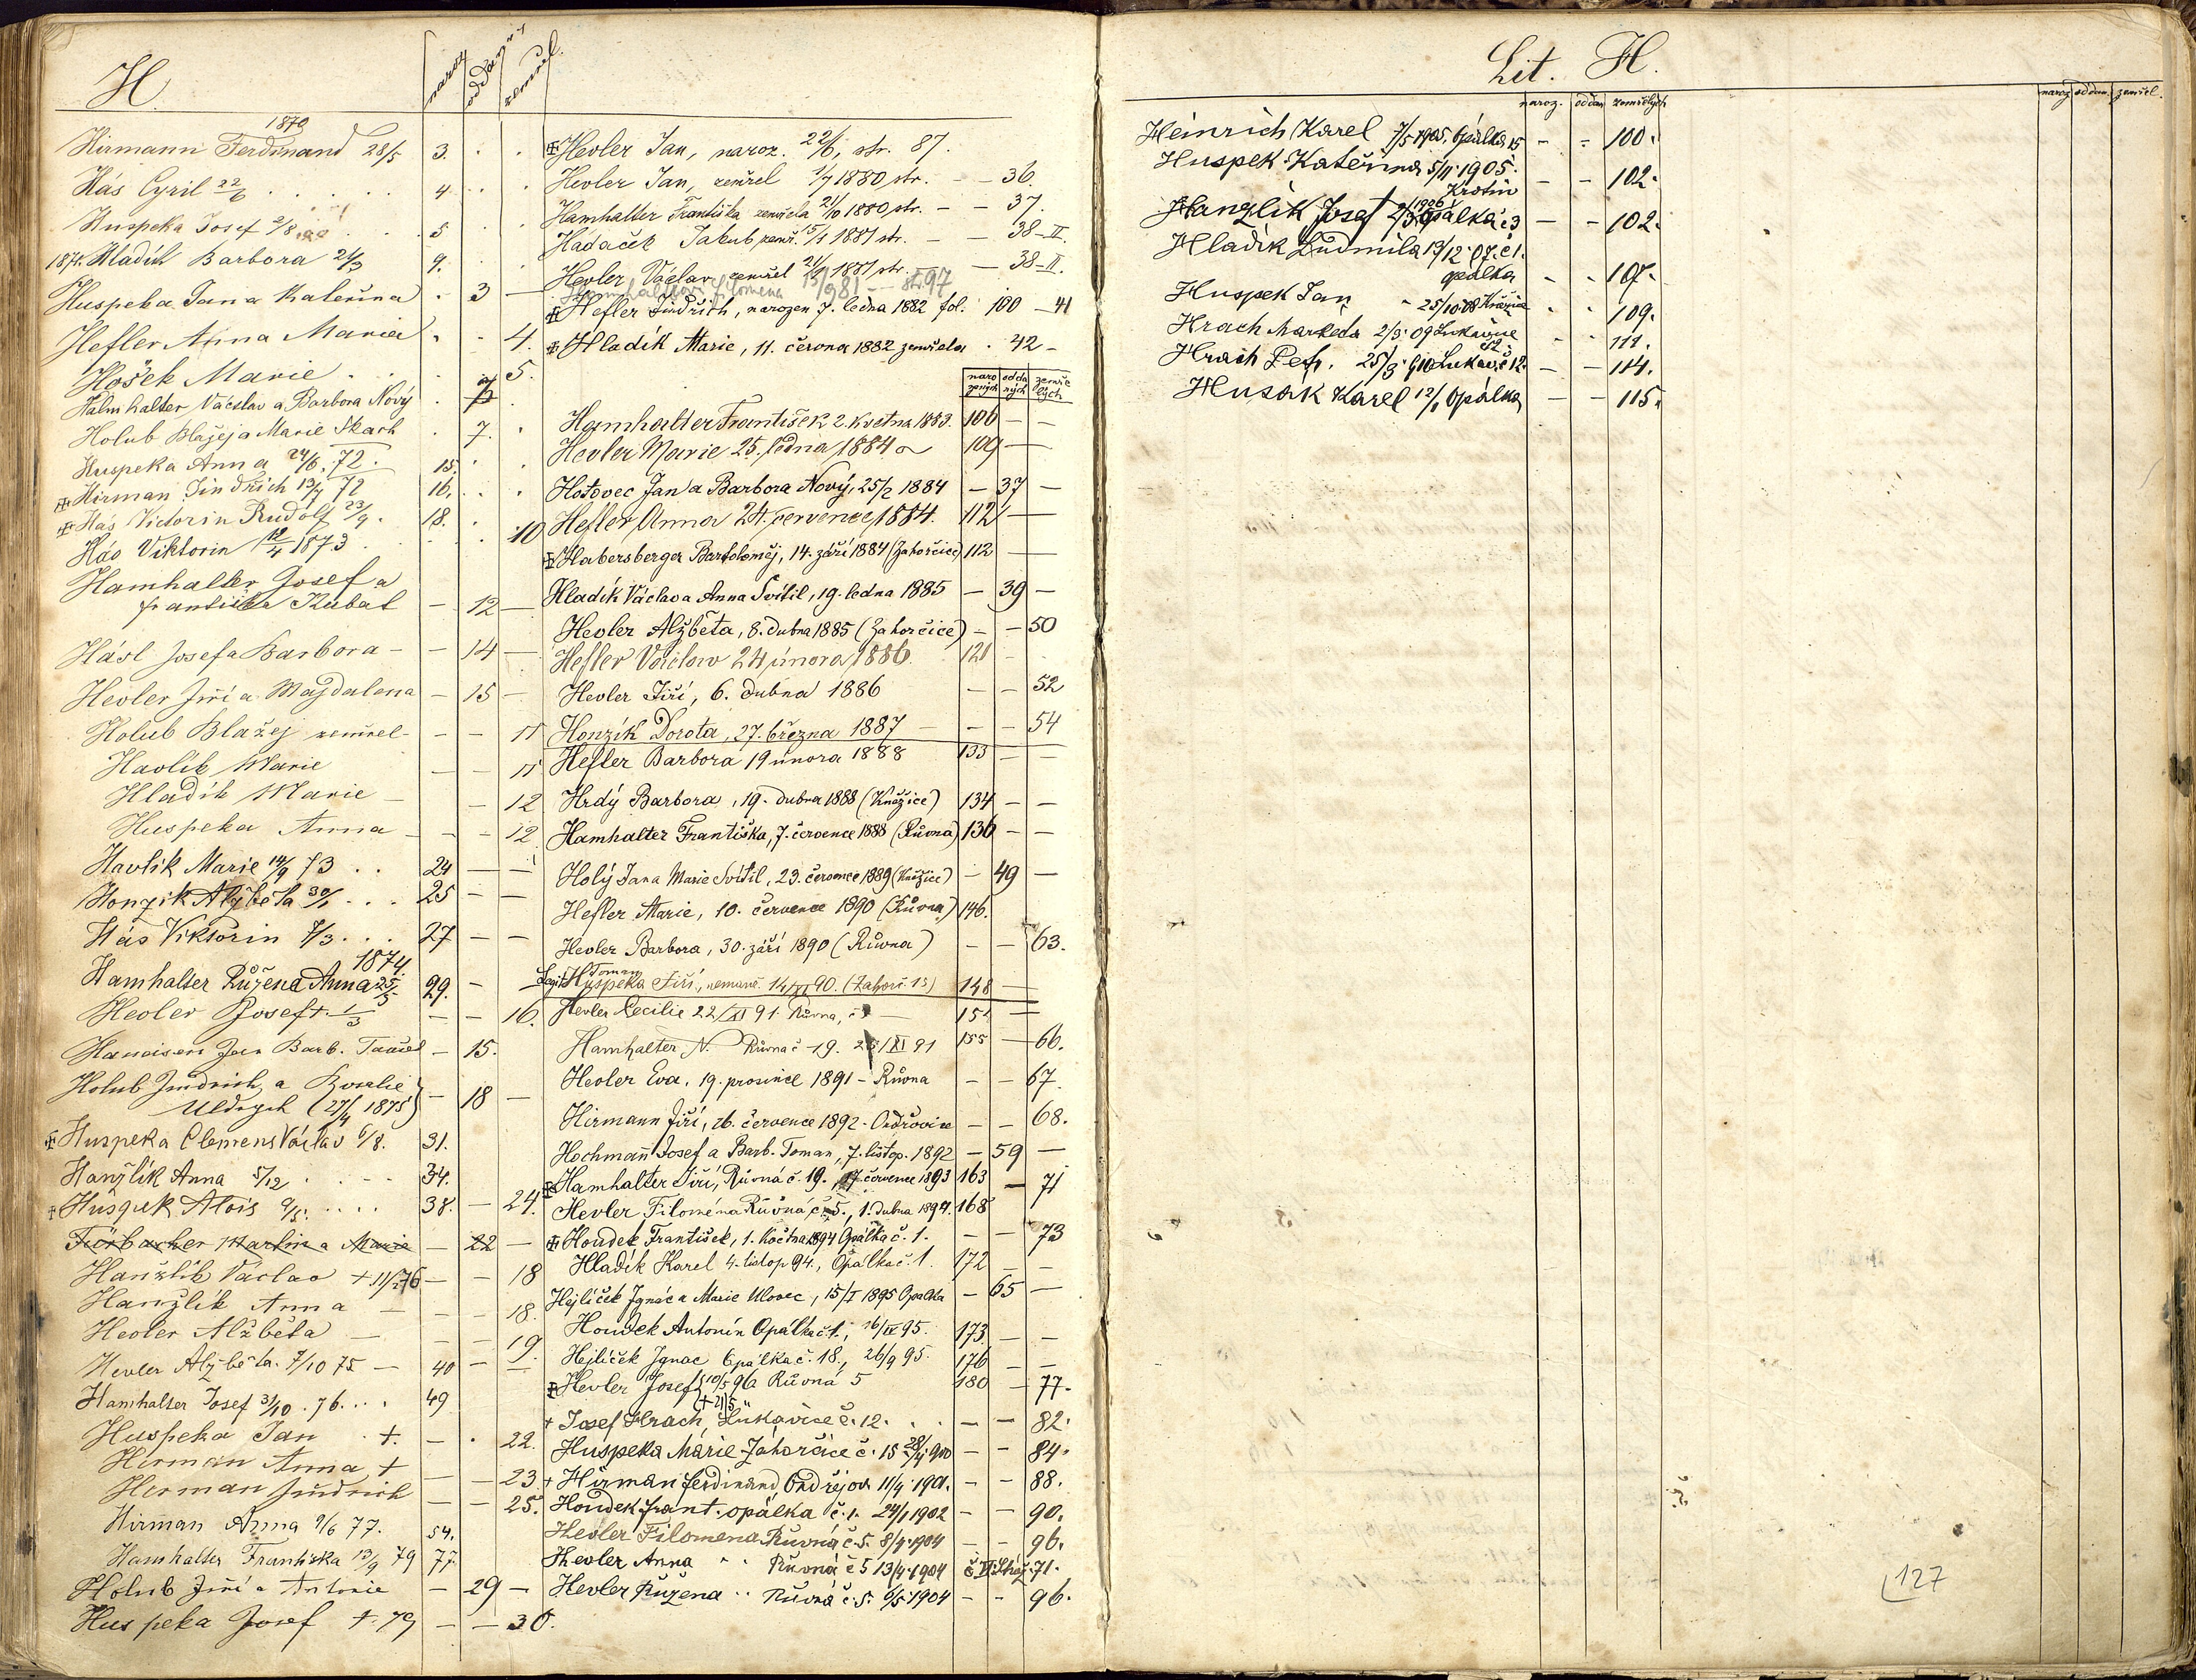 H.
naroz. oddaný zemřel.
1870
Hirmann Ferdinand 28/5 3. . .
Hás Cyril 22/6 . . . . . 4 . .
Huspeka Josef 2/8 . . . 5 . .
1871. Hladík Barbora 21/3 9. . .
Huspeka Jan a Kateřina . 3 —
Hefler Anna Maria . . 4.
Hošek Marie . . . . 5.
Halmhalter Václav a Barbora Nový . 7 .
Holub Blažej a Marie Skach . 7. .
Huspeka Anna 24/6. 72. 15. . .
✠ Hirman Jindřich 13/7 72 16. . .
✠ Hás Victorin Rudolf 23/9. 18. .
Hás Viktorin 12/4 1873 . . . . 10
Hamhalter Josef a
Františka Kubat — 12 —
Hásl Josef a Barbora — — 14 —
Hevler Jiří a Magdalena — 15 —
Holub Blažej zemřel — — — 11
Havlík Marie — — 11
Hladík Marie — — 12
Huspeka Anna — — — 12
Havlík Marie 14/9 73 . . 24 — —
Honzik Alžběta 30/1 . . . 25 — —
Hás Viktorin 7/3 . . . 27 — —
1874.
Hamhalter Růžena Anna 25/5 29. — —
Hevler Josef +. 1/3 — — 16.
Jan Barb. — 15.
Holub Jindřich a Rosalie
Uldrych (27/4 1875) — 18 —
✠ Huspeka Clemens Václav 6/8. 31.
Hanžlík Anna 5/12 . . . — 34.
✠ Huspek Alois 9/5. . . . . 38. — 24.
Fürbacher Martin a Marie — 22 —
Hanžlík Václav + 11/2 76 — — 18
Hanžlík Anna — — — 18.
Hevler Alžběta — — — 19.
Hevler Alžběta. 7/10 75 — 40 — —
Hamhalter Josef 31/10. 76. . . . 49
Huspeka Jan . +. — . 22.
Hirman Anna + — — 23
Herman Jindřich — — 25.
Hirman Anna 9/6 77. 54.
Hamhalter Františka 13/9 79 77.
Holub Jiří a Antonie — 29 —
Huspeka Josef +. 79 — — 30.
✠ Hevler Jan, naroz. 22/6, str. 87.
Hevler Jan, zemřel 1/7 1880 str. — — 36.
Hamhalter Františka zemřela 21/10 1880 str. — — 37.
Hádaček Jakub, zemř. 15/1 1881 str. — — 38-II.
Hevler Václav zemřel 21/9 1881 str. — 38-II.
Hamhalter Filomena 15/9 81 — str. 97
✠ Hefler Jindřich, narozen 7. ledna 1882 fol. 100 — 41
✠ Hladík Marie, 11. června 1882 zemřela . 42 —
naro zených odda ných zemře lých
Hamhalter František 2. května 1883. 106 — —
Hevler Marie 25. ledna 1884 109 —
Hotovec Jan a Barbora Nový, 25/2 1884 — 37 —
Hefler Anna 24. července 1884. 112 —
✠ Habersberger Bartoloměj, 14. září 1884 (Zahorčice) 112 —
Hladík Václav a Anna Svítil, 19. ledna 1885 — 39 —
Hevler Alžběta, 8. dubna 1885 (Zahorčice) — — 50
Hefler Václav 24 února 1886. 121 —
Hevler Jiří, 6. dubna 1886 — — 52
Honzík Dorota, 27. března 1887 — — — 54
Hefler Barbora 19 února 1888 133 — —
Hrdý Barbora, 19. dubna 1888 (Kněžice) 134 — —
Hamhalter Františka, 7. července 1888 (Růvna) 136 — —
Holý Jan a Marie Svítil, 23. července 1889 (Kněžice) — 49 —
Hefler Marie, 10. července 1890 (Růvna) 146.
Hevler Barbora, 30. září 1890 (Růvna) — — 63.
Toman
Huspeka Jiří, nemanž. 14/XI 90. (Zahorč. 15) 148 —
Hevler Cecilie 22/XI 91. Růvna, č. 151 —
Hamhalter N. Růvna č. 19. 25/XI 91 155 — 66.
Hevler Eva, 19. prosince 1891 — Růvna — — 67.
Hirmann Jiří, 26. července 1892 — Ondřovice — — 68.
Hochmann Josef a Barb. Toman, 7. listop. 1892 — 59 —
✠ Hamhalter Jiří, Růvná č. 19. 17. července 1893 163 — 71
Hevler Filoména Růvná č. 5., 1. dubna 1894. 168
✠ Houdek František, 1. května 1894 Opálka č. 1. — — 73
Hladík Karel 4. listop 94., Opálka č. 1. 172 — —
Hejlíček Ignác a Marie Ulovec, 15/I 1895 Opalka — 65 —
Houdek Antonín Opálka č. 1., 16/IV 95. 173. — —
Hejlíček Ignac Opálka č. 18., 26/9 95. 176 — —
✠ Hevler Josef 10/5 96 Růvná 5 180 — 77.
(+ 21/5)
+ Josef Hrach, Lukavice č. 12. . . — — 82.
Huspeka Marie Zahorčice č. 15 28/4 900 — — 84.
+ Hirman Ferdinand Ondřejov. 11/4 1901. — — 88.
Houdek Frant. opálka č. 1. 24/1 1902 — — 90.
Hevler Filomena Růvná č. 5. 8/4. 1904 — — 96.
Hevler Anna " " Růvná č 5 13/4. 1904 71.
Hevler Růžena " " Růvná č. 5. 6/5. 1904 — — 96.
Lit. H.
naroz. oddan zemřelých naroz oddan. zemřel.
Heinrich Karel 7/5 1905, Opálka 15 — — 100.
Huspek Kateřina 5/11. 1905.
Krotiv — — 102.
1906
Hanzlik Josef 2/3 Opálka č. 3 — — 102.
Hladík Ludmila 19/12. 07. č 1.
opálka — — 107.
Huspek Jan " 25/10. 08 Kněžice . . 109.
Hrach Markeda 2/3. 09 Lukavice
12. . . 111.
Hrach Petr. 25/3. 910 Lukav. č 12. — — 114.
Husák Karel 12/1 Opálka — — 115.
127